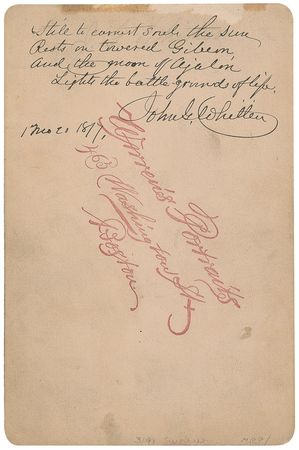 Still to earnest souls the sun
Rests on towered Gibeon
And the moon of Ajalon
Lights the battle-grounds of life.
John G. Whittier
1 Mo 20
Warren's Portraits
465 Washington St.
Boston